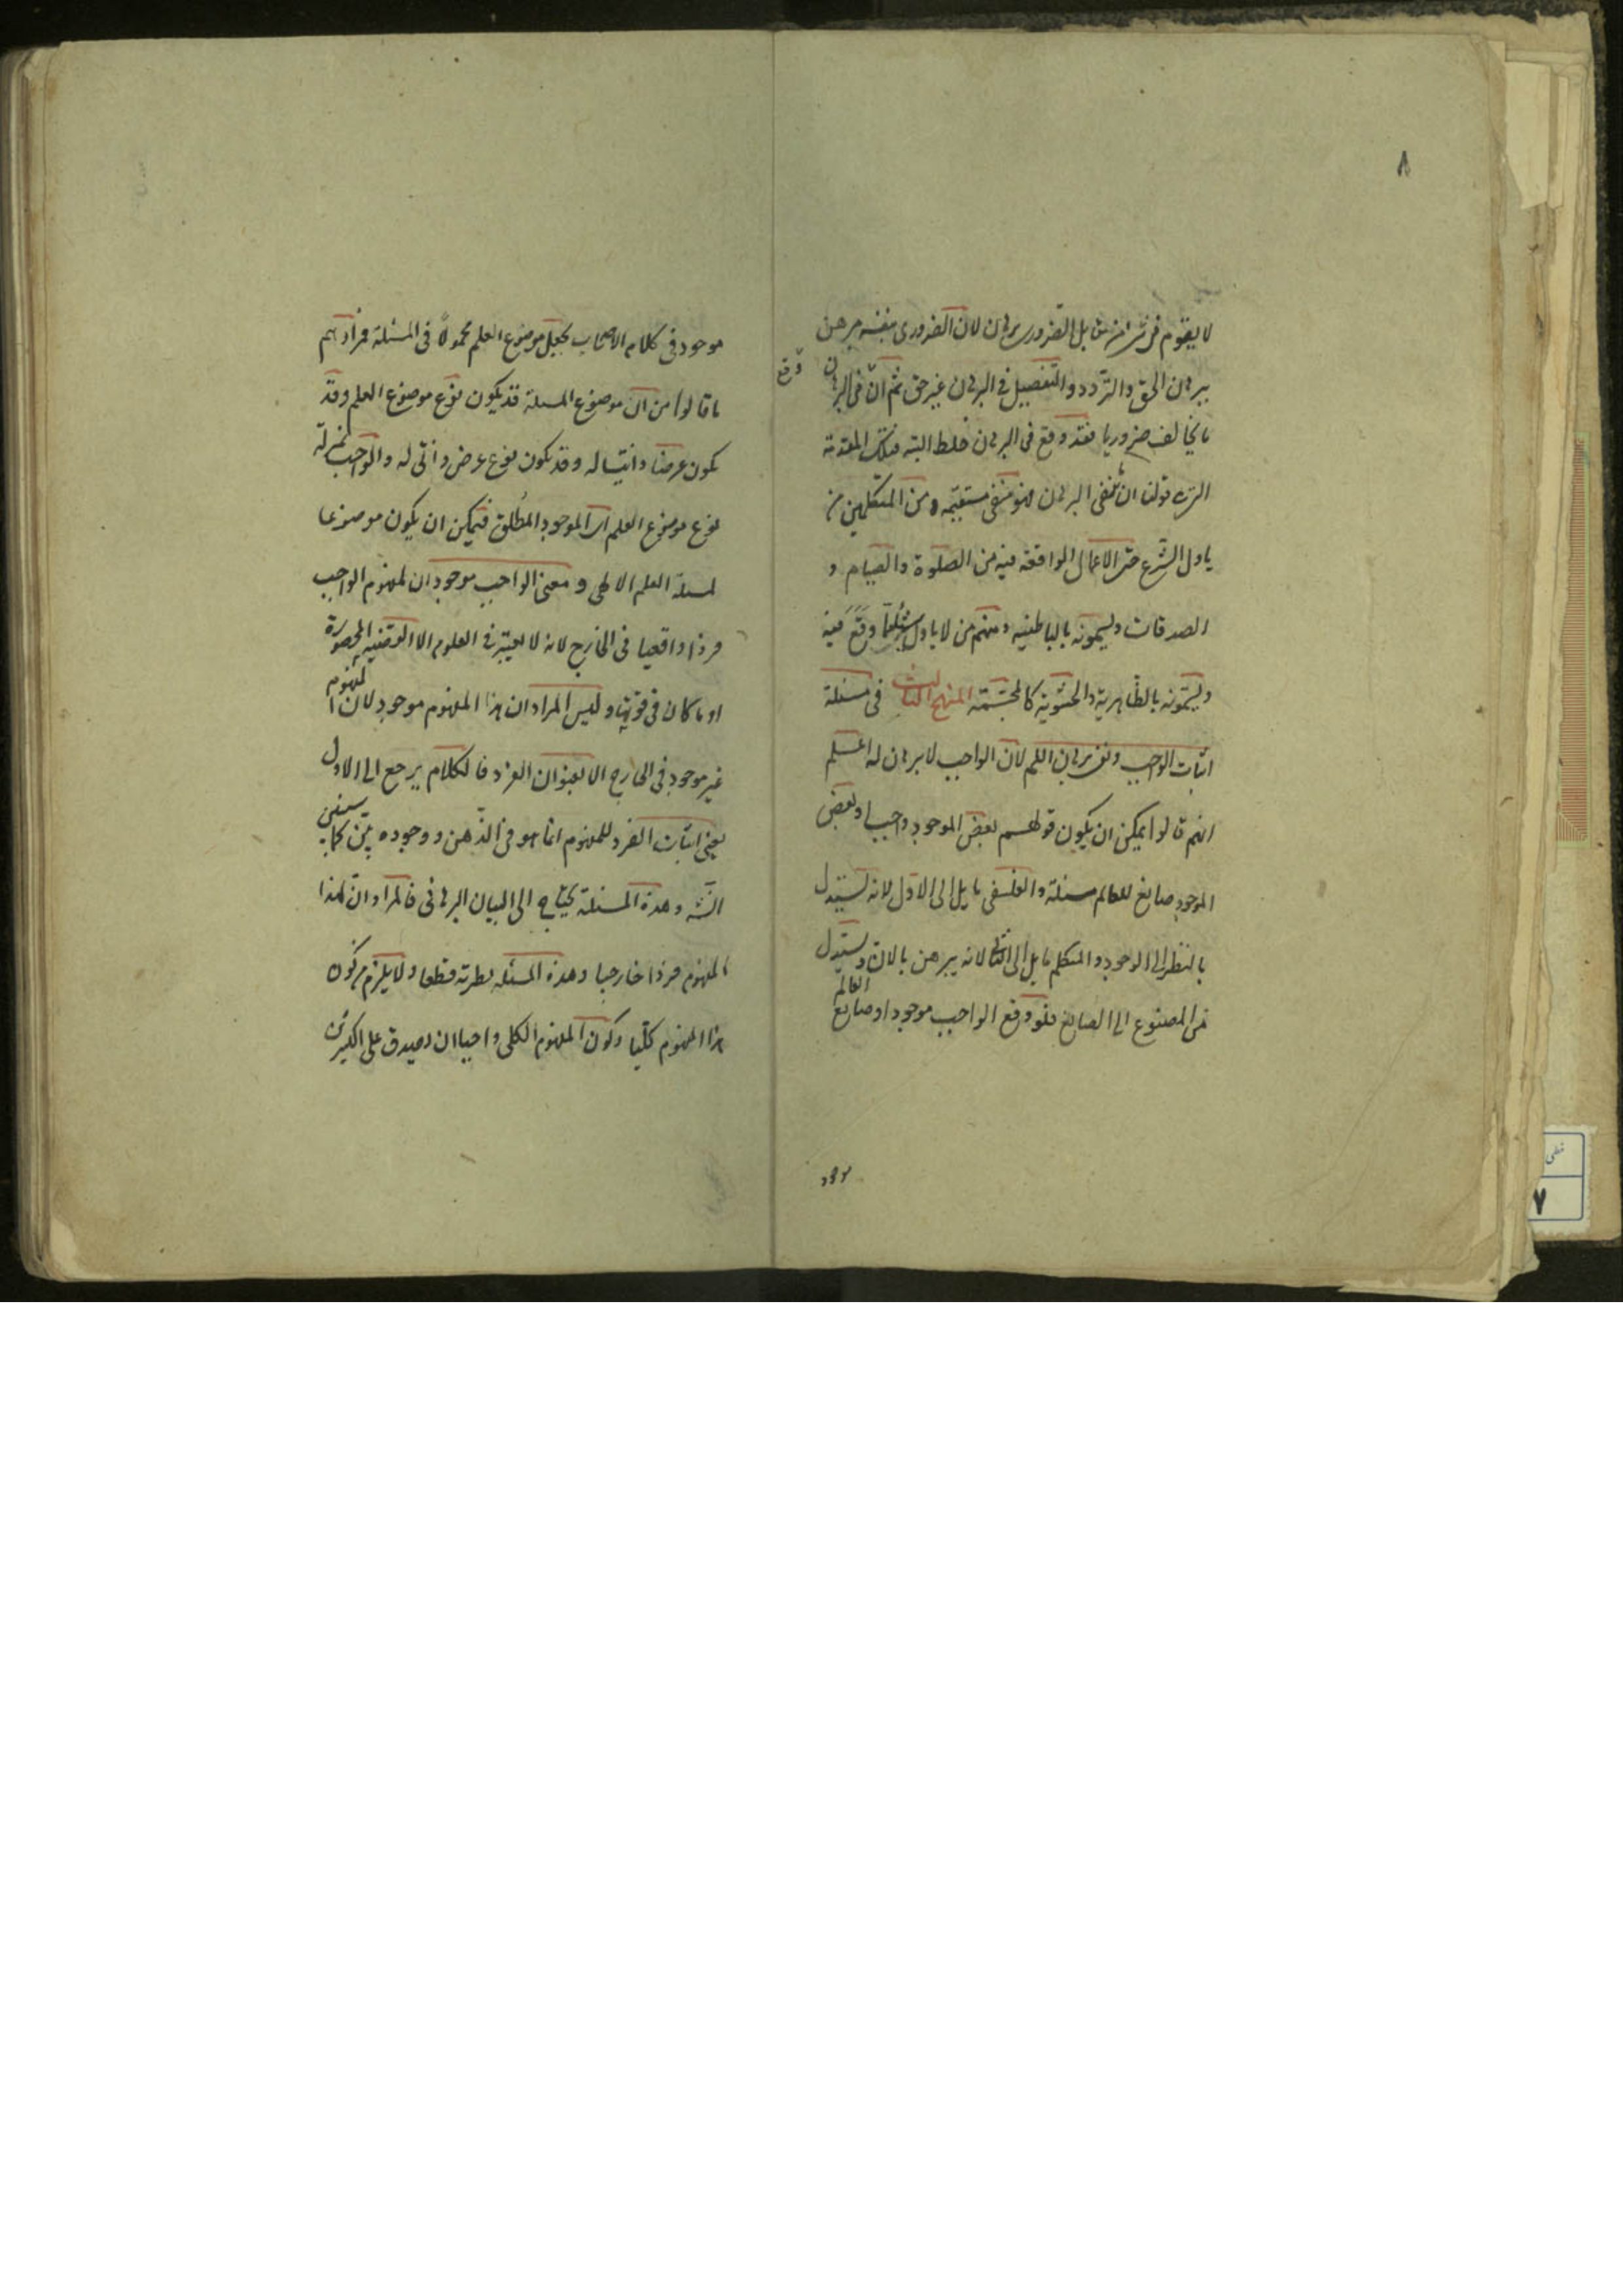 ٨
لا يقوم فى مقابل الضرورى برهان لان الضرورى بنفسه مبرهن
ببرهان الحق والتردد والتفصيل فى البرهان غير حق ثم ان فى البرهان وقع
ما يخالف ضروريا فقد وقع فى البرهان خلط البته فتلك المقدمة
قولنا ان نفى البرهان فهو منفى ومن المتكلمين من
ياول الشرع حتى الاعمال الواقعة فيه من الصلوة والصيام و
الصدقات ويسمونه بالباطنيه ومنهم من لا ياول شيئا وقع فيه
ويسمونه بالظاهرية والحشوية كالمجسمة المنهج الثالث فى مسئلة
اثبات الواجب ونفى برهان اللم لان الواجب لا برهان له اعلم
انهم قالوا يمكن ان يكون قولهم بعض الموجود واجب او بعض
الموجود صانع للعالم مسئلة والفلسفى مايل الى الاول لانه يستدل
بالنظر الى الوجود والمتكلم مايل الى الثانى لانه يبرهن بالان ويستدل
من المصنوع الى الصانع فلو وقع الواجب موجود او صانع العالم
موجود
موجود فى كلام الاصحاب بجعل موضوع العلم محمولا فى المسئلة فمرادهم
ما قالوا من ان موضوع المسئلة قد يكون نوع موضوع العلم وقد
يكون عرضا ذاتيا له وقد يكون نوع عرض ذاتى له والواجب بمنزلة
نوع موضوع العلم اى الموجود المطلق فيمكن ان يكون موضوعا
لمسئلة العلم الالهى ومعنى الواجب موجود ان لمفهوم الواجب
فردا واقعيا فى الخارج لانه لا يعتبر فى العلوم الا القضية المحصورة
او ما كان فى قوتها وليس المراد ان هذا المفهوم موجود لان المفهوم
غير موجود فى الخارج الا بعنوان الفرد فالكلام يرجع الى الاول
يعنى اثبات الفرد للمفهوم انما هو فى الذهن ووجوده
وهذه المسئلة يحتاج الى البيان البرهانى فالمراد ان لهذا
المفهوم فردا خارجيا وهذه المسئلة نظرية قطعا ولا يلزم من كون
هذا المفهوم كليا وكون المفهوم الكلى واجبا ان يصدق على الكثيرين
٧